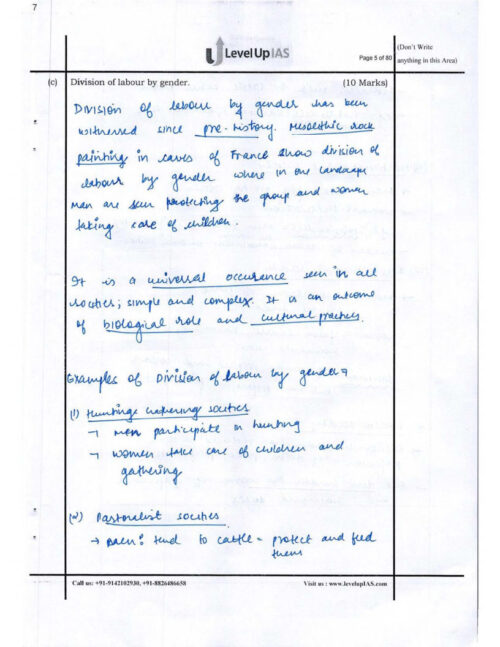 7
LevelUpIAS
Page 5 of 80
(Don't Write
anything in this Area)
(c) Division of labour by gender. (10 Marks)
Division of labour by gender has been
witnessed since pre-history. Mesolithic rock
painting in caves of France show division of
labour by gender where in one landscape
men are seen protecting the group and women
taking care of children.
It is a universal occurance seen in all
societies; simple and complex. It is an outcome
of biological role and cultural practices.
Examples of Division of labour by gender
(1) Hunting gathering societies
→ men participate in hunting
→ women take care of children and
gathering
(2) Pastoralist societies
→ men: tend to cattle - protect and feed
them
Call us: +91-9142102930, +91-8826486658
Visit us : www.levelupIAS.com